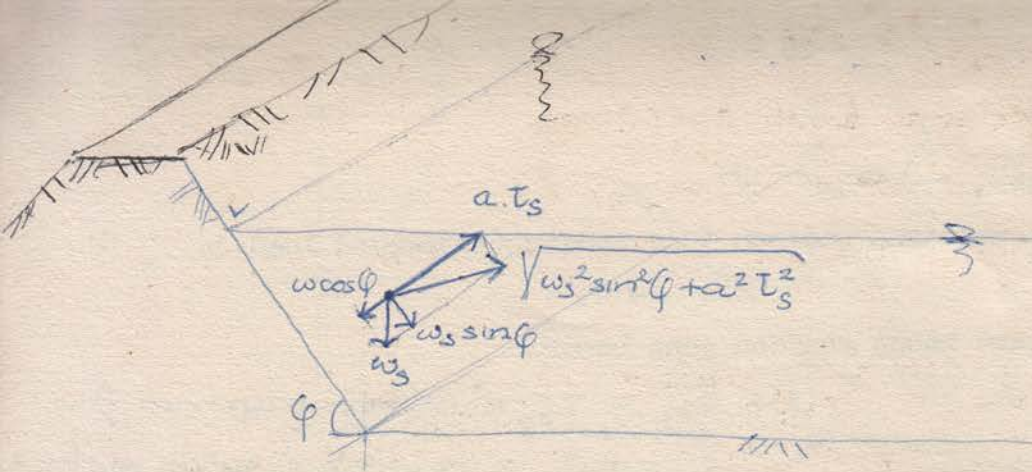 a.τs
ωcosφ
√ωs²sin²φ+a²τs²
ωs sinφ
ωs
φ